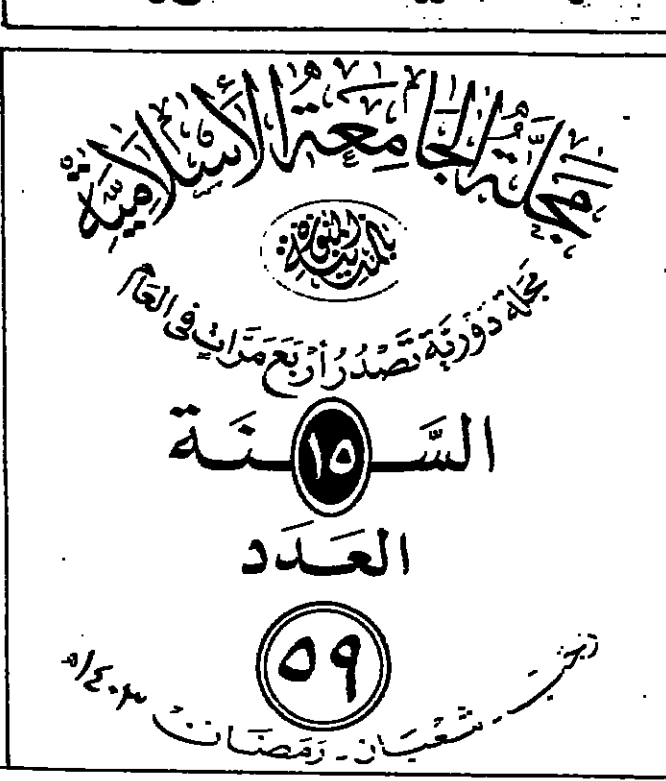 مجلة الجامعة الإسلامية
بالمدينة المنورة
مجلة دورية تصدر أربع مرات في العام
السنة
١٥
العدد
٥٩
رجب - شعبان - رمضان ١٤٠٣هـ